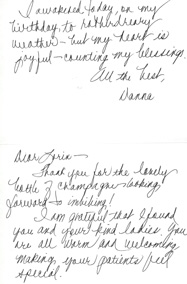 I awakened today, on my
birthday to rather dreary
weather — but my heart is
joyful — counting my blessings.
All the best,
Danna
Dear Lorin —
Thank you for the lovely
bottle of champagne looking
forward to imbibing!
I am grateful that I found
you and your kind ladies. You
are all warm and welcoming
making your patients feel
special.